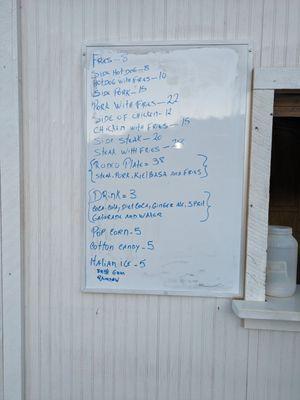 Fries - 5
Side Hot Dog - 8
Hot Dog with Fries - 10
Side Pork - 15
Pork with Fries - 22
Side of Chicken - 12
Chicken with Fries - 15
Side Steak - 20
Steak with Fries -
Rodeo Plate = 38
Steak, Pork, Kielbasa and Fries
Drink = 3
Coca-Cola, Diet Coca, Ginger Ale, Sprit
Gatorade and Water
Pop corn - 5
Cotton Candy - 5
Italian Ice - 5
Rainbow